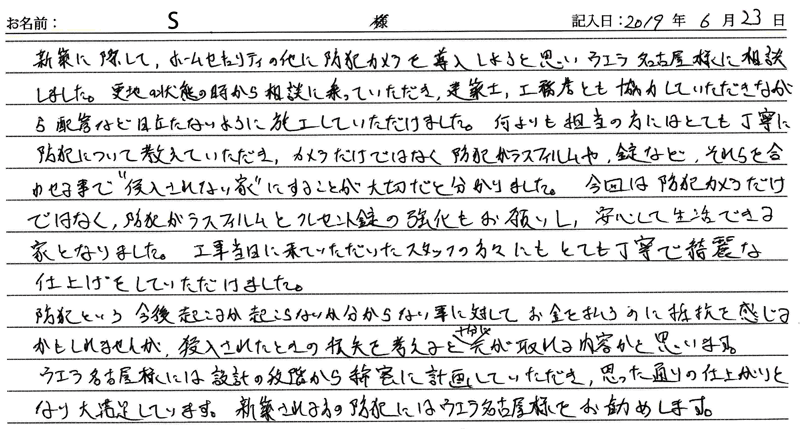 お名前: S 様 記入日:2019 年 6 月 23 日
新築に際して,ホームセキュリティの他に防犯カメラを導入しようと思いウエラ名古屋様に相談
しました。更地の状態の時から相談に乗っていただき,建築士,工務店とも協力していただきなが
ら配管など目立たないように施工していただけました。何よりも担当の方にはとても丁寧に
防犯について教えていただき,カメラだけではなく防犯ガラスフィルムや,錠など,それらを合
わせる事で"侵入されない家"にすることが大切だと分かりました。今回は防犯カメラだけ
ではなく,防犯ガラスフィルムとクレセント錠の強化もお願いし,安心して生活できる
家となりました。工事当日に来ていただいたスタッフの方々にもとても丁寧で綺麗な
仕上げをしていただけました。
防犯という今後起こるか起こらないか分からない事に対してお金を払うのに抵抗を感じる
かもしれませんが,侵入されたときの損失を考えると十分に元が取れる内容かと思います。
ウエラ名古屋様には設計の段階から綿密に計画していただき,思った通りの仕上がりと
なり大満足しています。新築される方の防犯にはウエラ名古屋様をお勧めします。